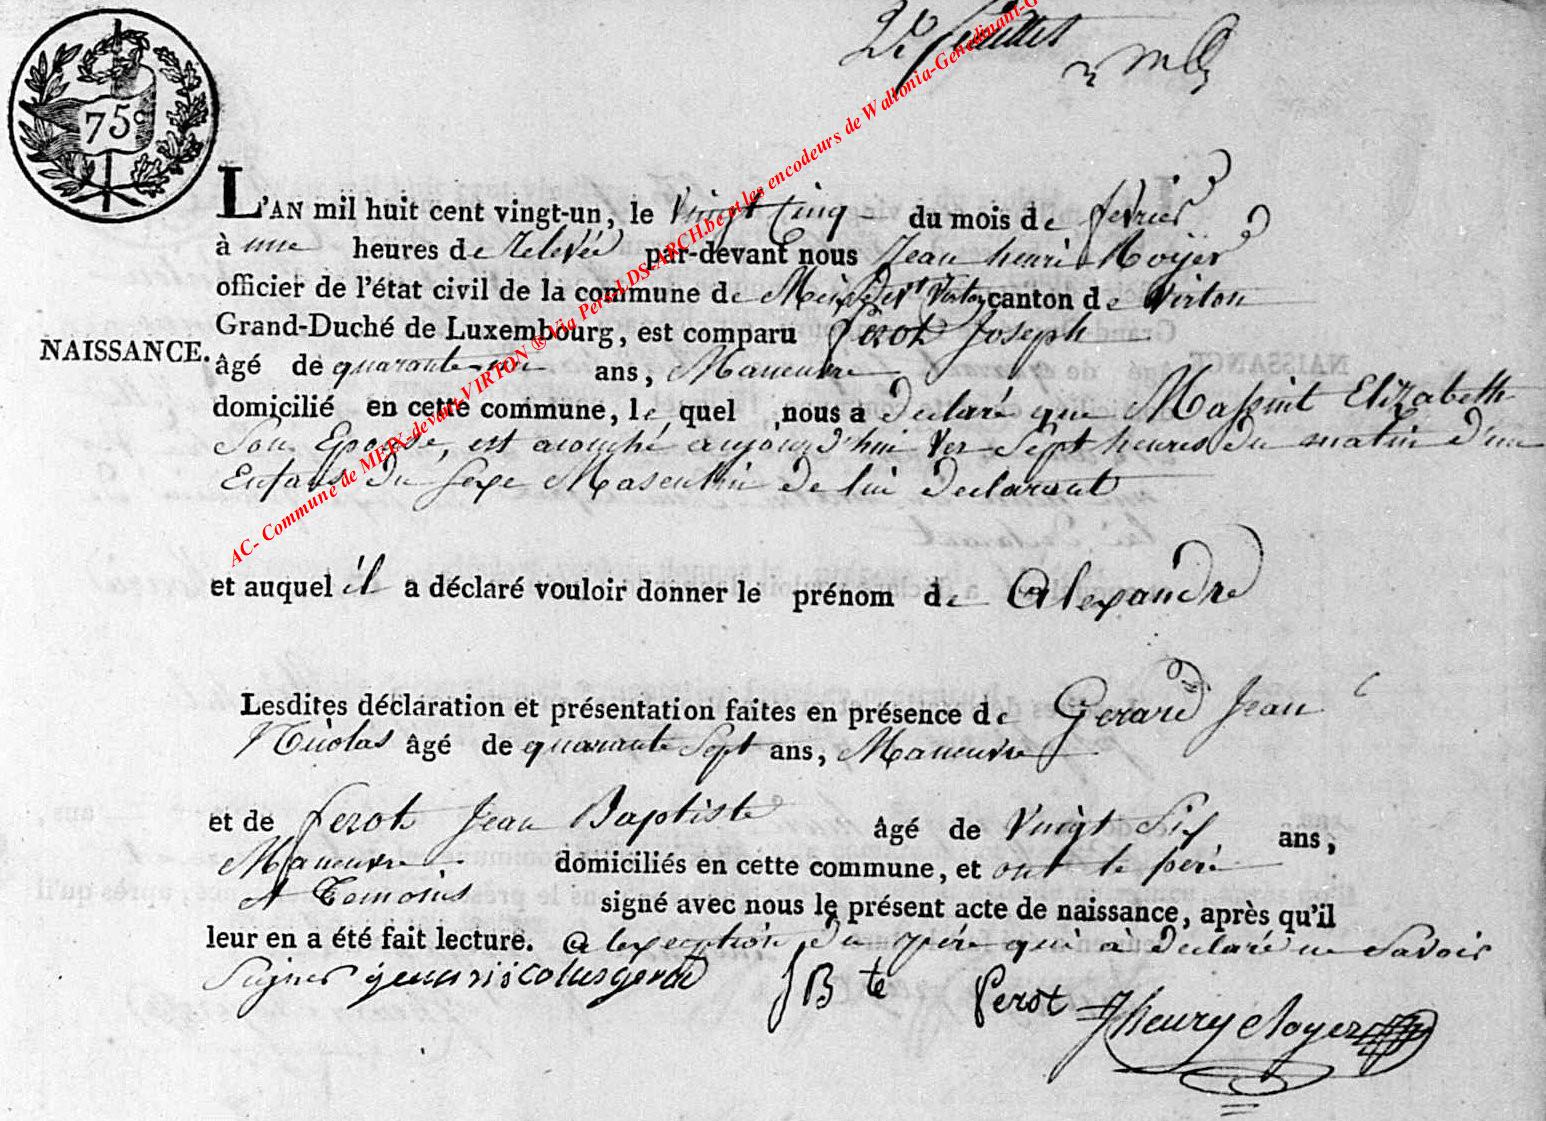 2e feuillet
75c
L'AN mil huit cent vingt-un, le Vingt Cinq du mois de fevrier
à une heures de relevée par-devant nous Jean henri Noÿer
officier de l'état civil de la commune de Meix devt Virton canton de Virton
Grand-Duché de Luxembourg, est comparu ferot Joseph
NAISSANCE. âgé de quarante-un ans, Maneuvre
domicilié en cette commune, le quel nous a declaré que Massint Elizabeth
Son Epouse, est acouché aujourd'hui Ver Sept heures du matin d'un
Enfans du Sexe Masculin de lui declarant
et auquel il a déclaré vouloir donner le prénom de Alexandre
Lesdites déclaration et présentation faites en présence de Gerard Jean
Nicolas âgé de quarante Sept ans, Maneuvre
et de ferot Jean Baptiste âgé de Vingt Six ans,
Maneuvre domiciliés en cette commune, et ont le peré
et Temoins signé avec nous le présent acte de naissance, après qu'il
leur en a été fait lecture. a lexception du peré qui à declaré ne Savoir
Signer jean nicolas gerard JBte ferot JHenry Noyer
AC- Commune de MEIX-devant-VIRTON ® Via Pers-LDS-ARCH.be et les encodeurs de Waltonia-Genedinant-G